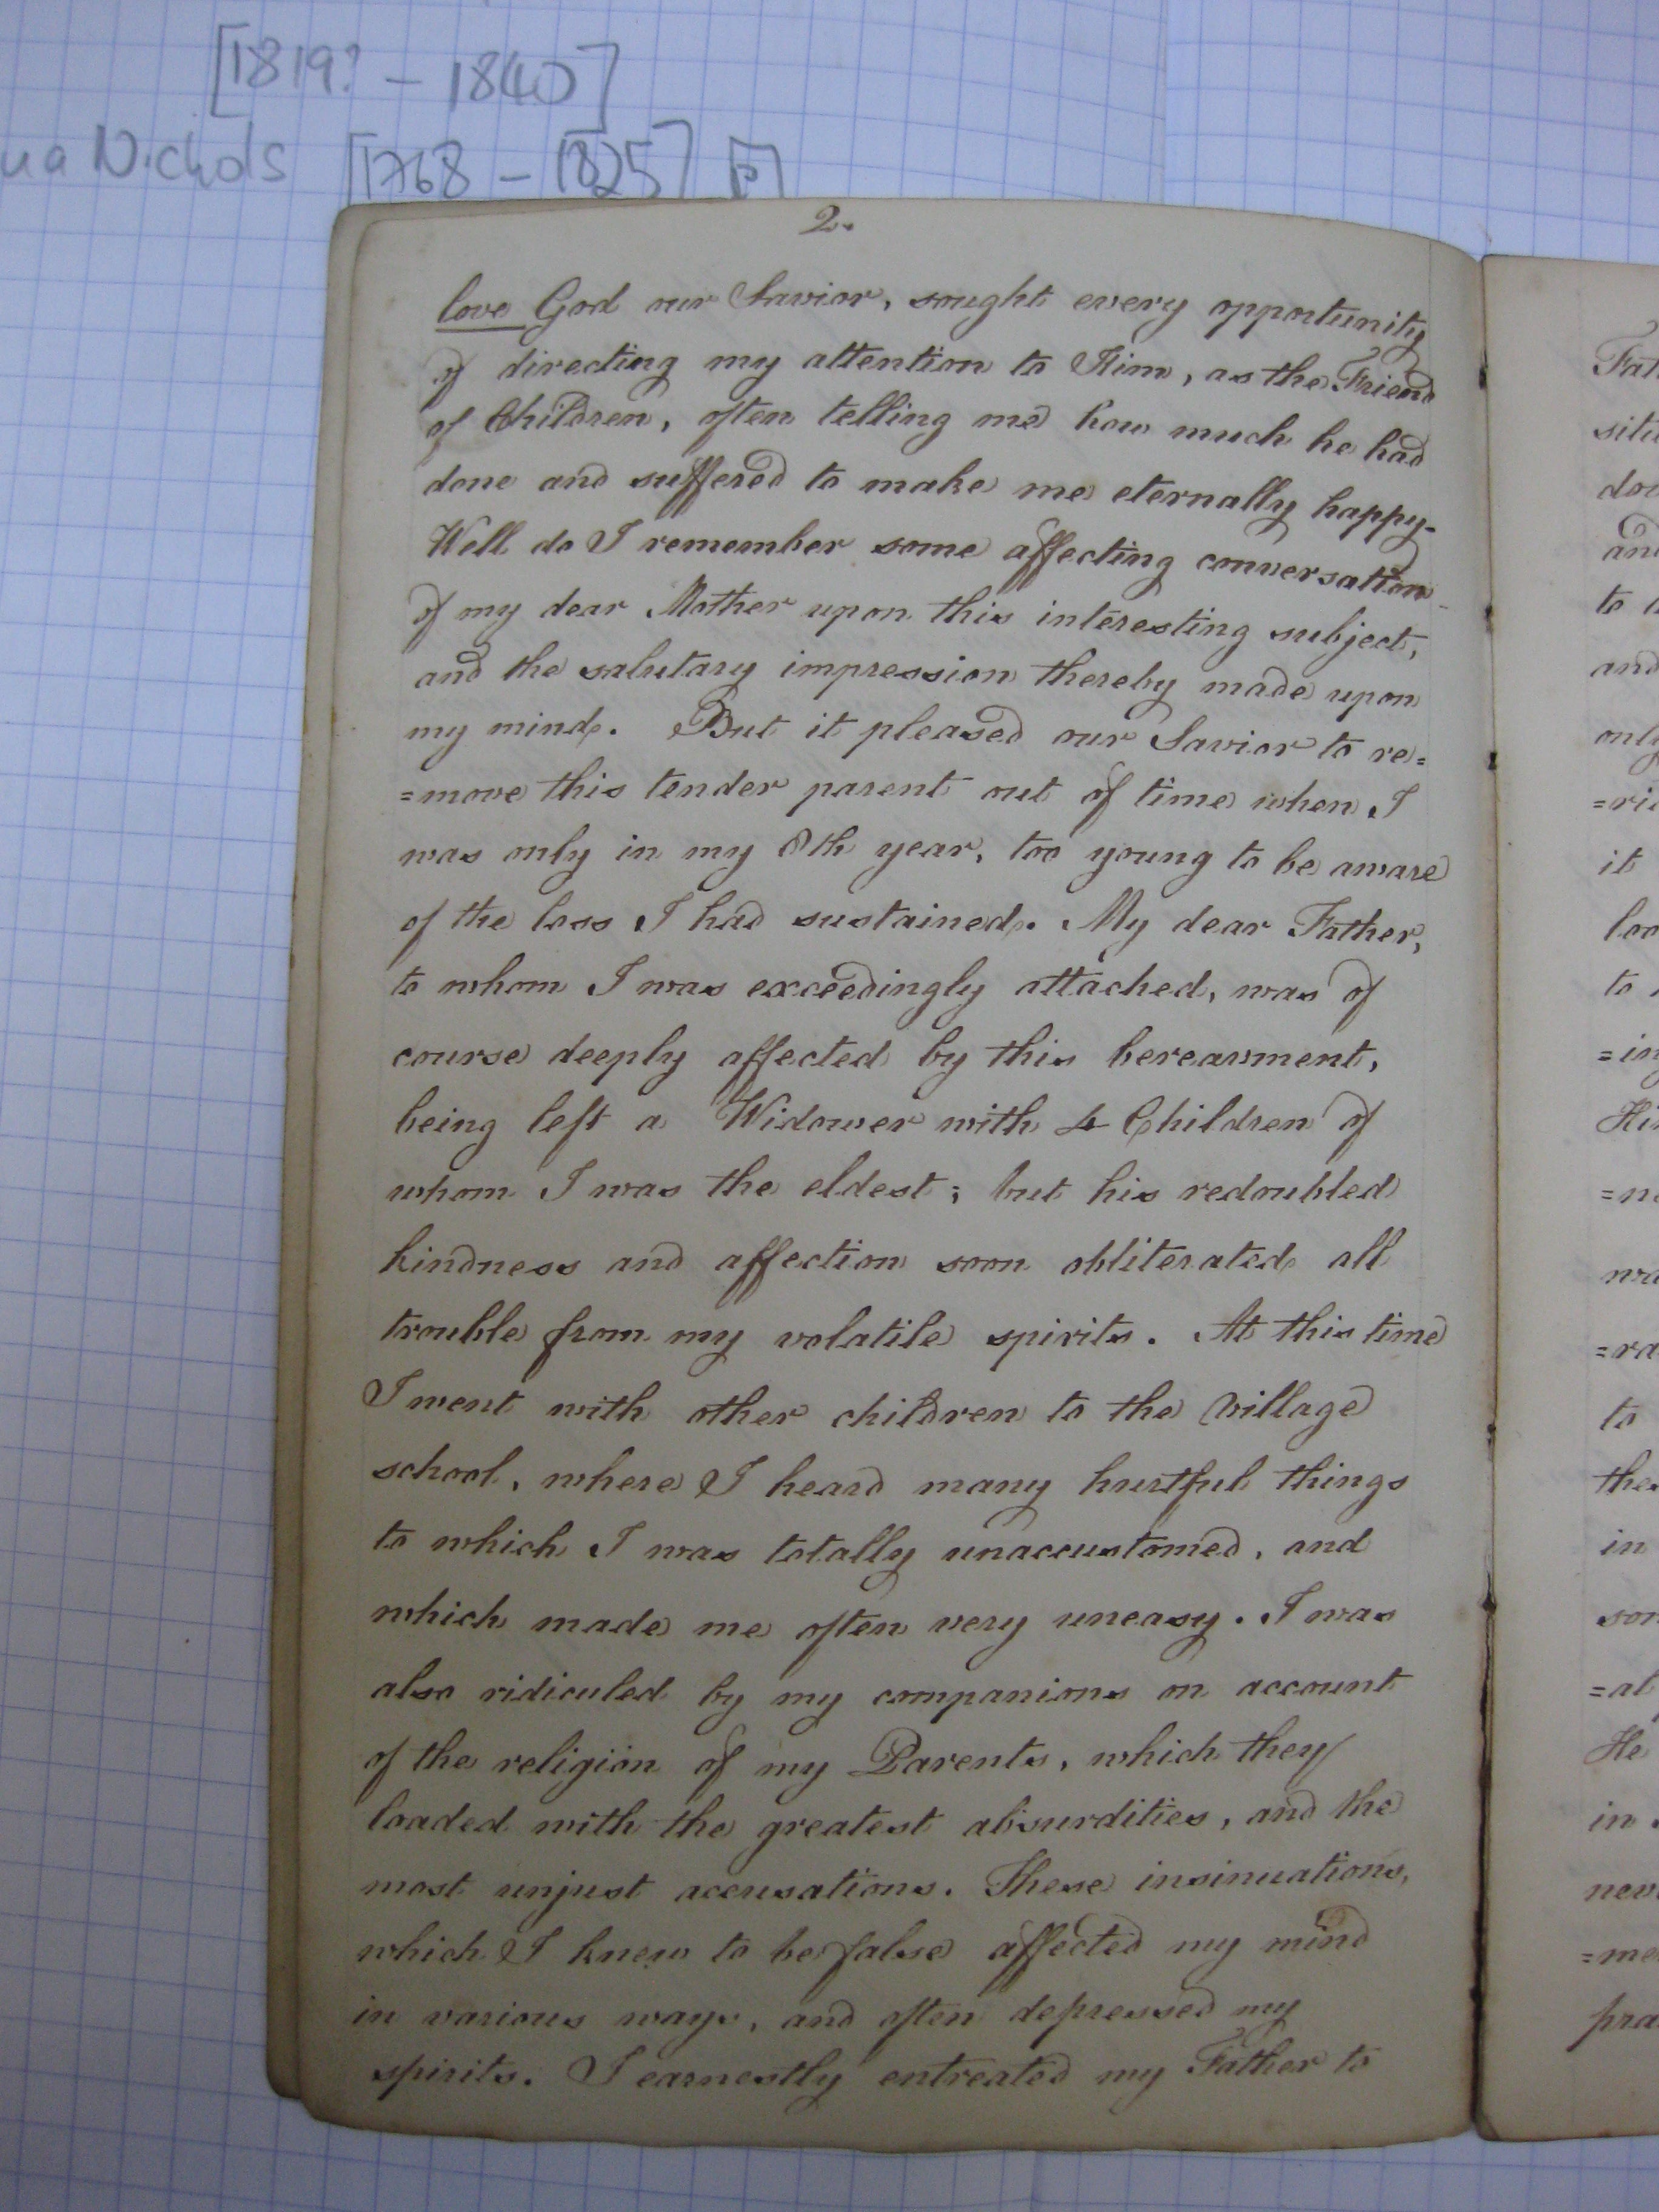 [1819? - 1840]
ua Nichols [1768 - 1825] [P]
2.
love God our Savior, sought every opportunity
of directing my attention to Him, as the Friend
of Children, often telling me how much he had
done and suffered to make me eternally happy.
Well do I remember some affecting conversation
of my dear Mother upon this interesting subject,
and the salutary impression thereby made upon
my mind. But it pleased our Savior to re=
=move this tender parent out of time when I
was only in my 8th year, too young to be aware
of the loss I had sustained. My dear Father,
to whom I was exceedingly attached, was of
course deeply affected by this bereavment,
being left a Widower with 4 Children of
whom I was the eldest; but his redoubled
kindness and affection soon obliterated all
trouble from my volatile spirits. At this time
I went with other children to the village
school, where I heard many hurtful things
to which I was totally unaccustomed, and
which made me often very uneasy. I was
also ridiculed by my companions on account
of the religion of my Parents, which they
loaded with the greatest absurdities, and the
most unjust accusations. These insinuations,
which I knew to be false affected my mind
in various ways, and often depressed my
spirits. I earnestly entreated my Father to
Fat
situ
and
to
and
only
=ri
it
loo
to
=in
Hi
=n
wa
=ra
to
the
in
son
=al
He
in
nev
=me
pra